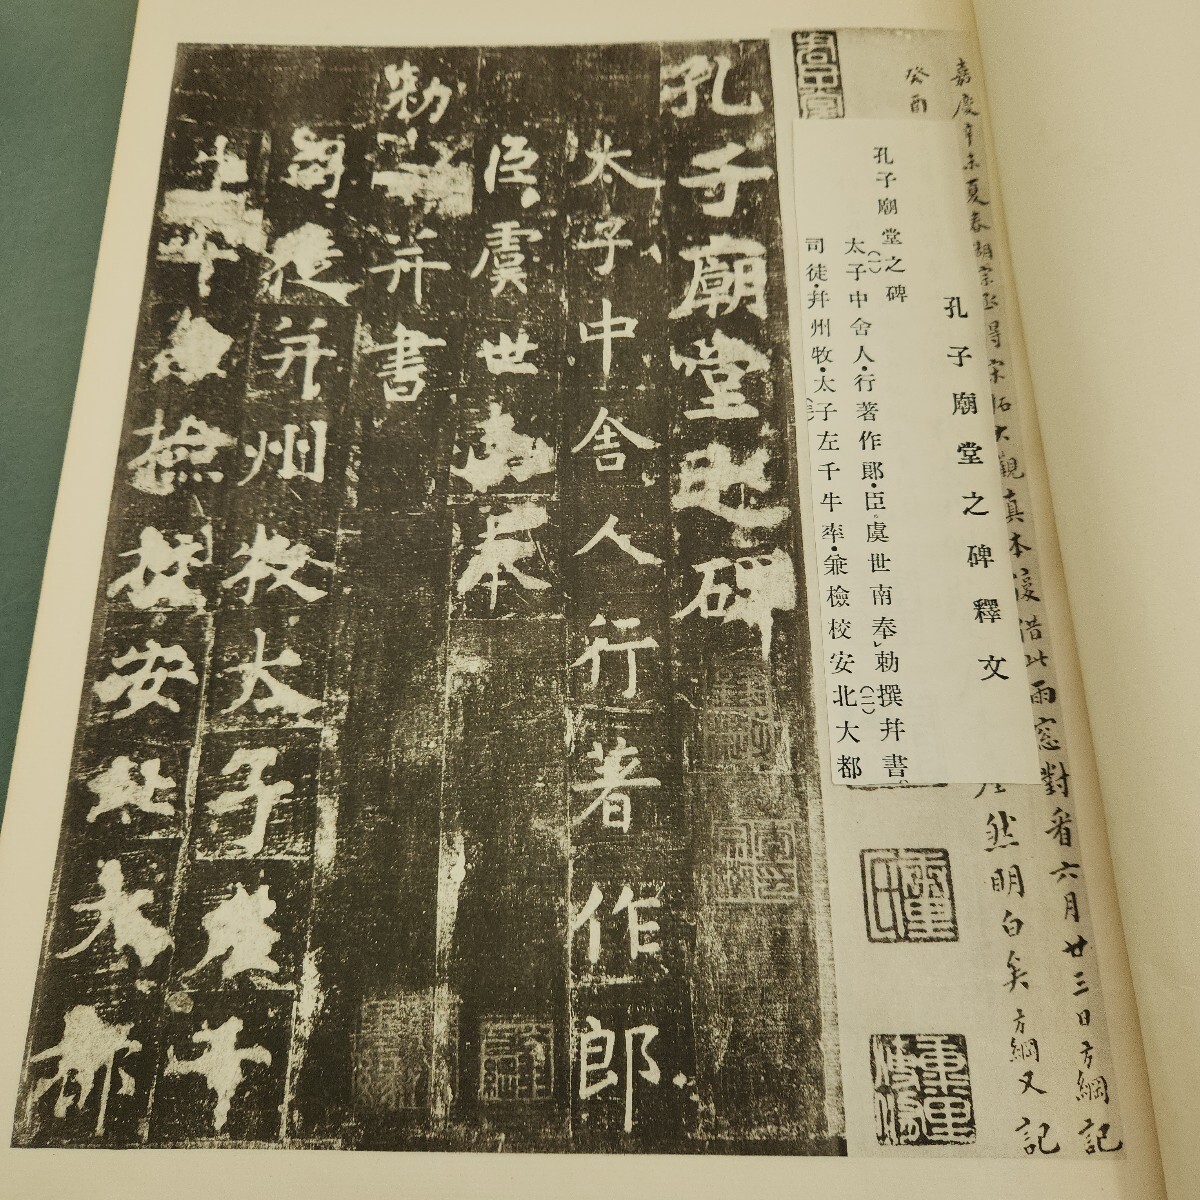 嘉慶辛未夏春湖宗丞得宋拓大觀真本復借此雨窓對看六月廿三日方綱記
癸酉
然明白矣方綱又記
孔子廟堂之碑釋文
孔子廟堂之碑
太子中舍人・行著作郞・臣虞世南奉勅撰幷書。
司徒・幷州牧・太子左千牛率・兼檢校安北大都
孔子廟堂之碑
太子中舍人行著作郎
臣虞世南奉
勅
并書
司徒并州牧太子左千
牛率兼檢校安北大都